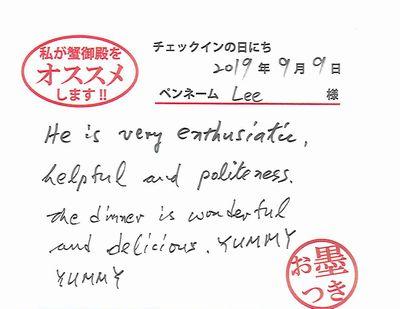 私が蟹御殿を
オススメ
します!!
チェックインの日にち
2019 年 9 月 9 日
ペンネーム Lee 様
He is very enthusiatic,
helpful and politeness.
the dinner is wonderful
and delicious. YUMMY
YUMMY
お墨
つき